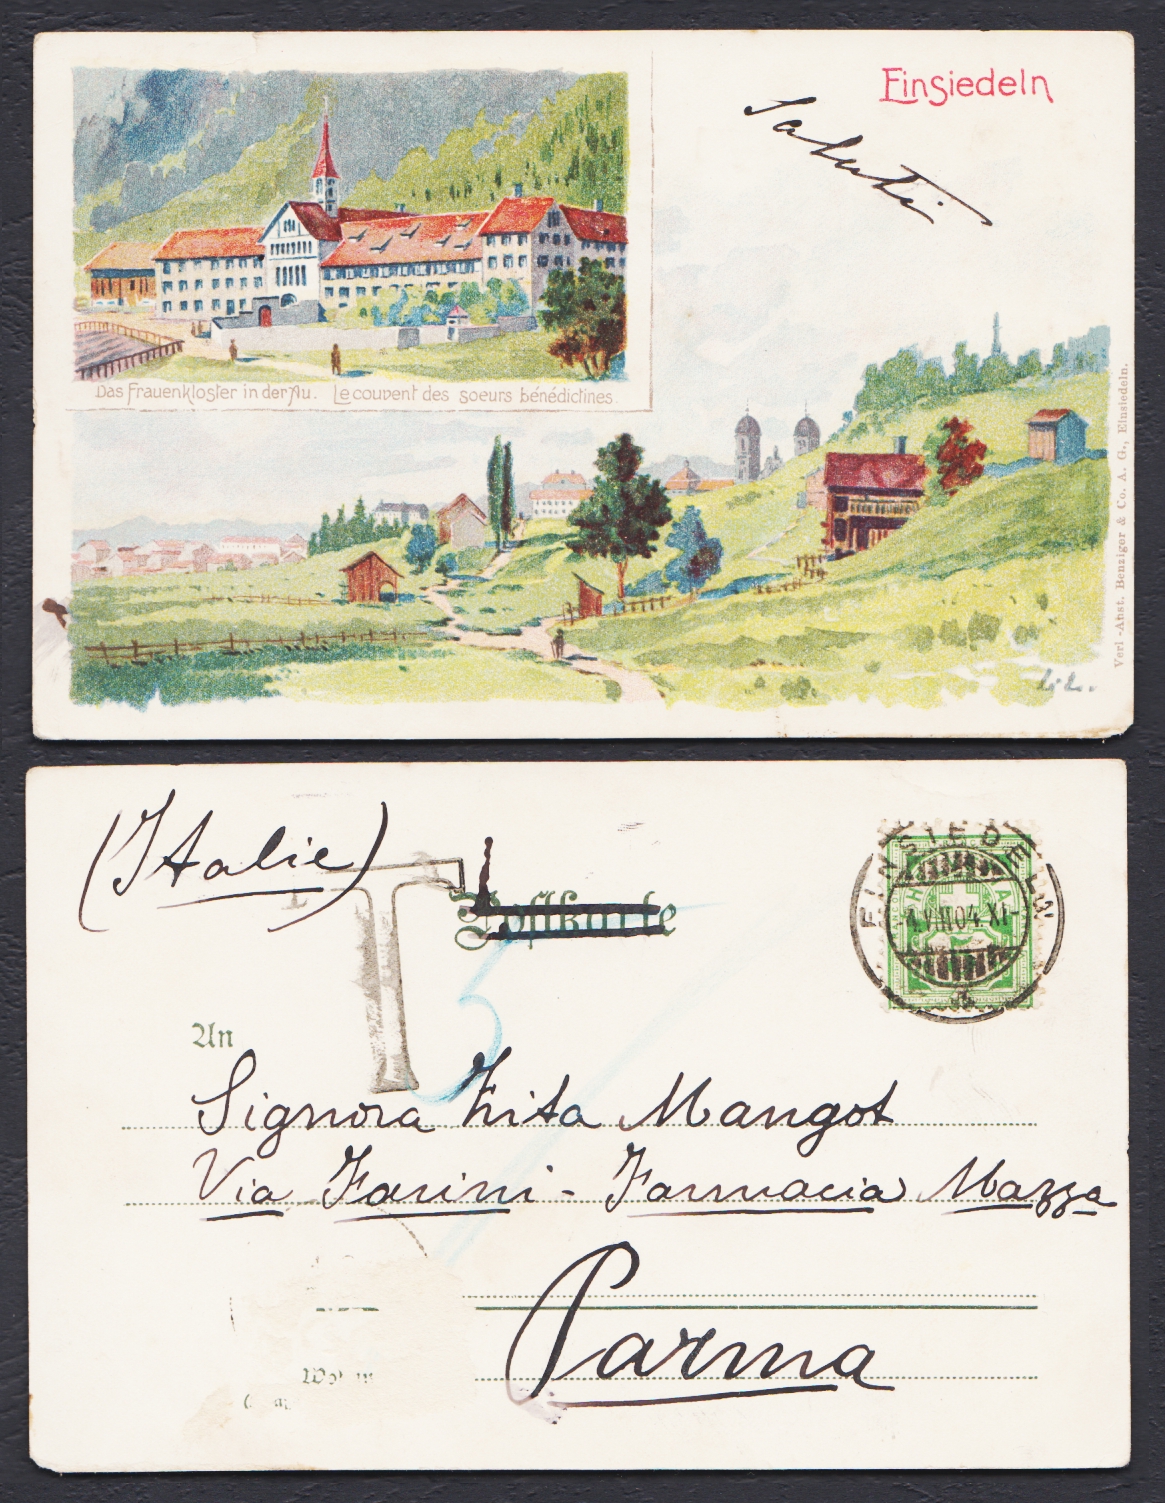 Einsiedeln
Saluti
Das Frauenkloster in der Au. Le couvent des soeurs bénédictines.
Verl.-Anst. Benziger & Co. A. G., Einsiedeln.
(Italie)
T
Postkarte
EINSIEDELN
-1.VIII.04.XI-
An
Signora Zita Mangot
Via Farini - Farmacia Mazza
Parma